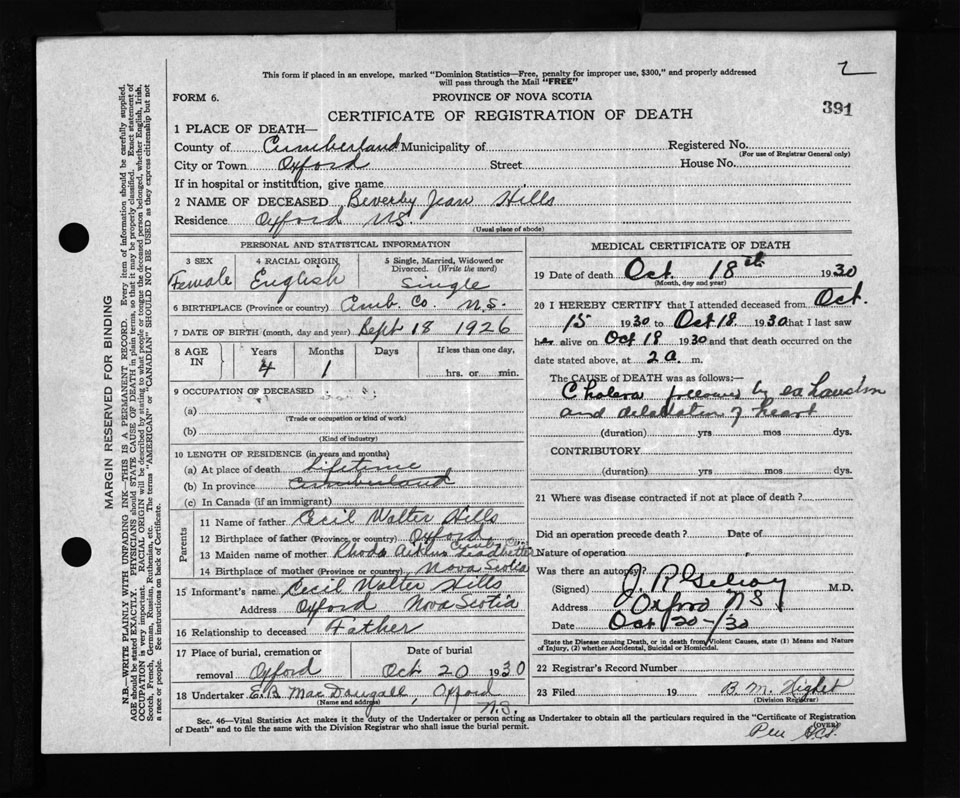 2
This form if placed in an envelope, marked "Dominion Statistics—Free, penalty for improper use, $300," and properly addressed
will pass through the Mail "FREE"
FORM 6.
PROVINCE OF NOVA SCOTIA
391
CERTIFICATE OF REGISTRATION OF DEATH
1 PLACE OF DEATH—
County of Cumberland Municipality of Registered No.
(For use of Registrar General only)
City or Town Oxford Street House No.
If in hospital or institution, give name
2 NAME OF DECEASED Beverly Jean Hills
Residence Oxford N.S.
(Usual place of abode)
PERSONAL AND STATISTICAL INFORMATION
3 SEX
Female
4 RACIAL ORIGIN
English
5 Single, Married, Widowed or
Divorced. (Write the word)
Single
6 BIRTHPLACE (Province or country) Cumb. Co. N.S.
7 DATE OF BIRTH (month, day and year) Sept 18 1926
8 AGE IN
Years
4
Months
1
Days
If less than one day,
hrs. or min.
9 OCCUPATION OF DECEASED
(a)
(Trade or occupation or kind of work)
(b)
(Kind of industry)
10 LENGTH OF RESIDENCE (in years and months)
(a) At place of death Lifetime
(b) In province Cumberland
(c) In Canada (if an immigrant)
Parents
11 Name of father Cecil Walter Hills
12 Birthplace of father (Province or country) Oxford
13 Maiden name of mother Rhoda
14 Birthplace of mother (Province or country) Nova Scotia
15 Informant's name Cecil Walter Hills
Address Oxford Nova Scotia
16 Relationship to deceased Father
17 Place of burial, cremation or
removal Oxford
Date of burial
Oct 20 1930
18 Undertaker E.B. MacDougall, Oxford
(Name and address)
N.S.
MEDICAL CERTIFICATE OF DEATH
19 Date of death Oct. 18th 1930
(Month, day and year)
20 I HEREBY CERTIFY that I attended deceased from Oct.
15 1930 to Oct 18 1930 that I last saw
her alive on Oct 18 1930 and that death occurred on the
date stated above, at 2 a. m.
The CAUSE of DEATH was as follows:—
Cholera followed by exhaustion
and dilatation of heart
(duration) yrs mos dys.
CONTRIBUTORY
(duration) yrs mos dys.
21 Where was disease contracted if not at place of death?
Did an operation precede death? Date of
Nature of operation
Was there an autopsy?
(Signed) M.D.
Address Oxford NS
Date Oct 20-/30
State the Disease causing Death, or in death from Violent Causes, state (1) Means and Nature
of Injury, (2) whether Accidental, Suicidal or Homicidal.
22 Registrar's Record Number
23 Filed 19 B. M.
(Division Registrar)
Sec. 46—Vital Statistics Act makes it the duty of the Undertaker or person acting as Undertaker to obtain all the particulars required in the "Certificate of Registration
of Death" and to file the same with the Division Registrar who shall issue the burial permit.
(OVER)
MARGIN RESERVED FOR BINDING
N.B.—WRITE PLAINLY WITH UNFADING INK—THIS IS A PERMANENT RECORD. Every item of information should be carefully supplied.
AGE should be stated EXACTLY. PHYSICIANS should STATE CAUSE OF DEATH in plain terms, so that it may be properly classified. Exact statement of
OCCUPATION is very important. RACIAL ORIGIN will be described by stating to what people or tongue the deceased person belonged, whether English, Irish,
Scotch, French, German, Russian, Ruthenian, etc. The terms "AMERICAN" or "CANADIAN" SHOULD NOT BE USED as they express citizenship but not
a race or people. See instructions on back of Certificate.